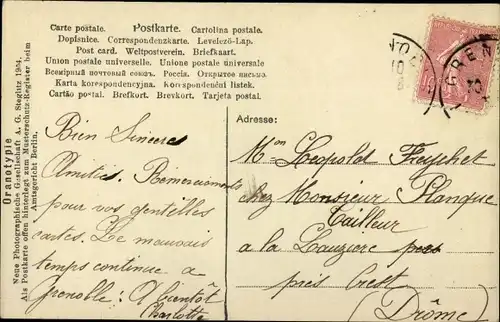 Carte postale. Postkarte. Cartolina postale.
Dopisnice. Correspondenzkarte. Levelező-Lap.
Post card. Weltpostverein. Briefkaart.
Union postale universelle. Unione postale universale
Всемірный почтовый союзъ. Россія. Открытое письмо.
Karta korespondencyjna. Korespondenční lístek.
Cartão postal. Brefkort. Brevkort. Tarjeta postal.
Oranotypie
Neue Photographische Gesellschaft A. G. Steglitz 1904.
Als Postkarte offen hinterlegt zum Musterschutz-Register beim
Amtsgericht Berlin.
Bien Sincères
Amitiés. Remerciements
pour vos gentilles
cartes. Le mauvais
temps continue a
Grenoble. A bientôt
Charlotte
Adresse:
Mon Léopold
chez Monsieur Planque
Tailleur
a la Lauzière
près Crest
(Drôme)
GREN